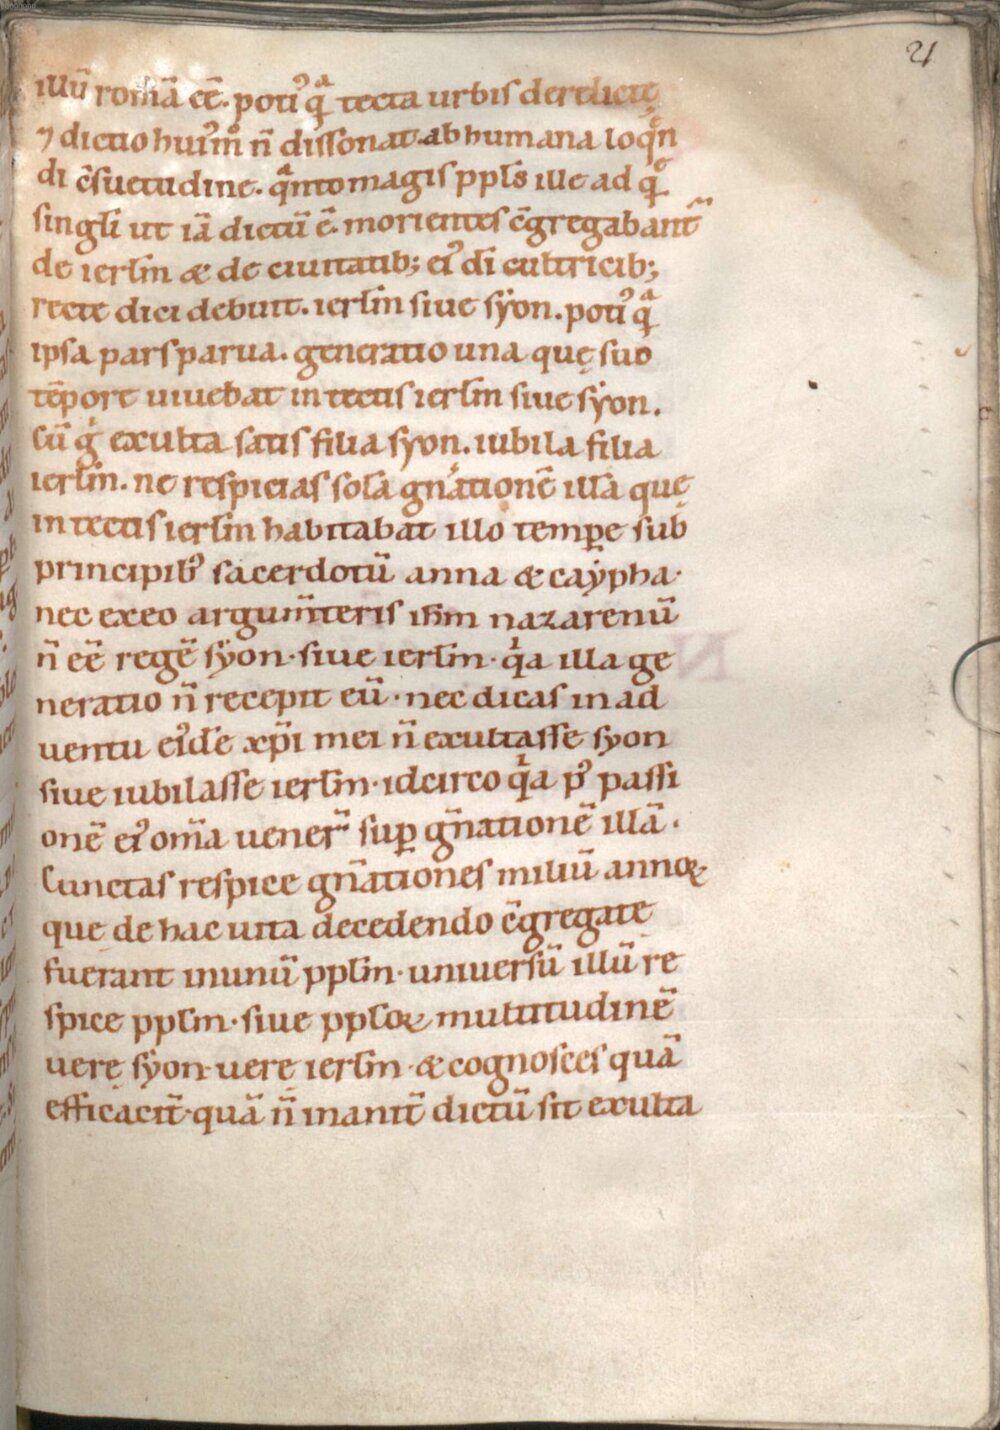 21
illū romā eē. poti᷒ qͣ tecta urbis derelictę
⁊ dictio hui᷒mͦ n̄ dissonat ab humana loqͦn
di c̄suetudine. qͣnto magis ppl̄s ille ad qͦ
singl̄i ut iā dictū ē. morientes c̄gregabant᷑
de ierl̄m & de ciuitatib; ei᷒ di cultricib;
recte dici debuit. ierl̄m siue sẏon. poti᷒ qͣ
ipsa pars parua. generatio una quę suo
tēpore uiuebat in tectis ierl̄m siue sẏon.
Cū gͥ exulta satis filia syon. iubila filia
ierl̄m. ne respicias solā gn̄ationē illā quę
in tectis ierl̄m habitabat illo temꝑe sub
principib᷒ sacerdotū anna & caẏpha.
nec ex eo argum̄teris ih̄m nazarenū
n̄ eē regē sẏon. siue ierl̄m. qͥa illa ge
neratio n̄ recepit eū. nec dicas in ad
uentu ei᷒dē xp̄i mei n̄ exultasse syon
siue iubilasse ierl̄m. idcirco qͥa p᷒ passi
onē ei᷒ om̄a uener̄ suꝑ gn̄ationē illā.
Cunctas respice gn̄ationes miliū annoꝝ
que de hac uita decedendo c̄gregate
fuerant in unū ppl̄m. uniuersū illū re
spice ppl̄m. siue ppl̄oꝝ multitudinē
uere sẏon uerę ierl̄m. & cognosces quā
efficacit̄. quā n̄ inanit̄ dictū sit exulta